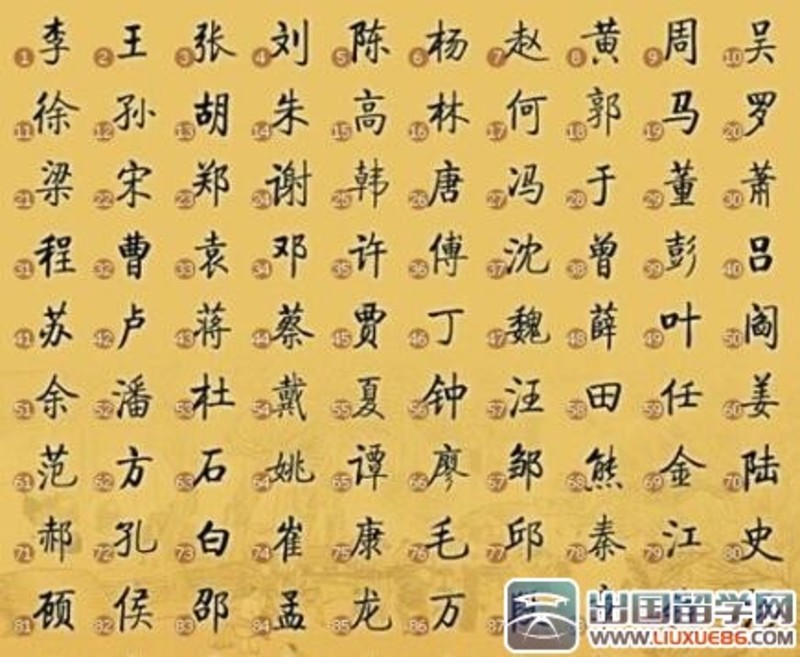 1李 2王 3张 4刘 5陈 6杨 7赵 8黄 9周 10吴
11徐 12孙 13胡 14朱 15高 16林 17何 18郭 19马 20罗
21梁 22宋 23郑 24谢 25韩 26唐 27冯 28于 29董 30萧
31程 32曹 33袁 34邓 35许 36傅 37沈 38曾 39彭 40吕
41苏 42卢 43蒋 44蔡 45贾 46丁 47魏 48薛 49叶 50阎
51余 52潘 53杜 54戴 55夏 56钟 57汪 58田 59任 60姜
61范 62方 63石 64姚 65谭 66廖 67邹 68熊 69金 70陆
71郝 72孔 73白 74崔 75康 76毛 77邱 78秦 79江 80史
81顾 82侯 83邵 84孟 85龙 86万 87
出国留学网
www.LIUXUE86.com